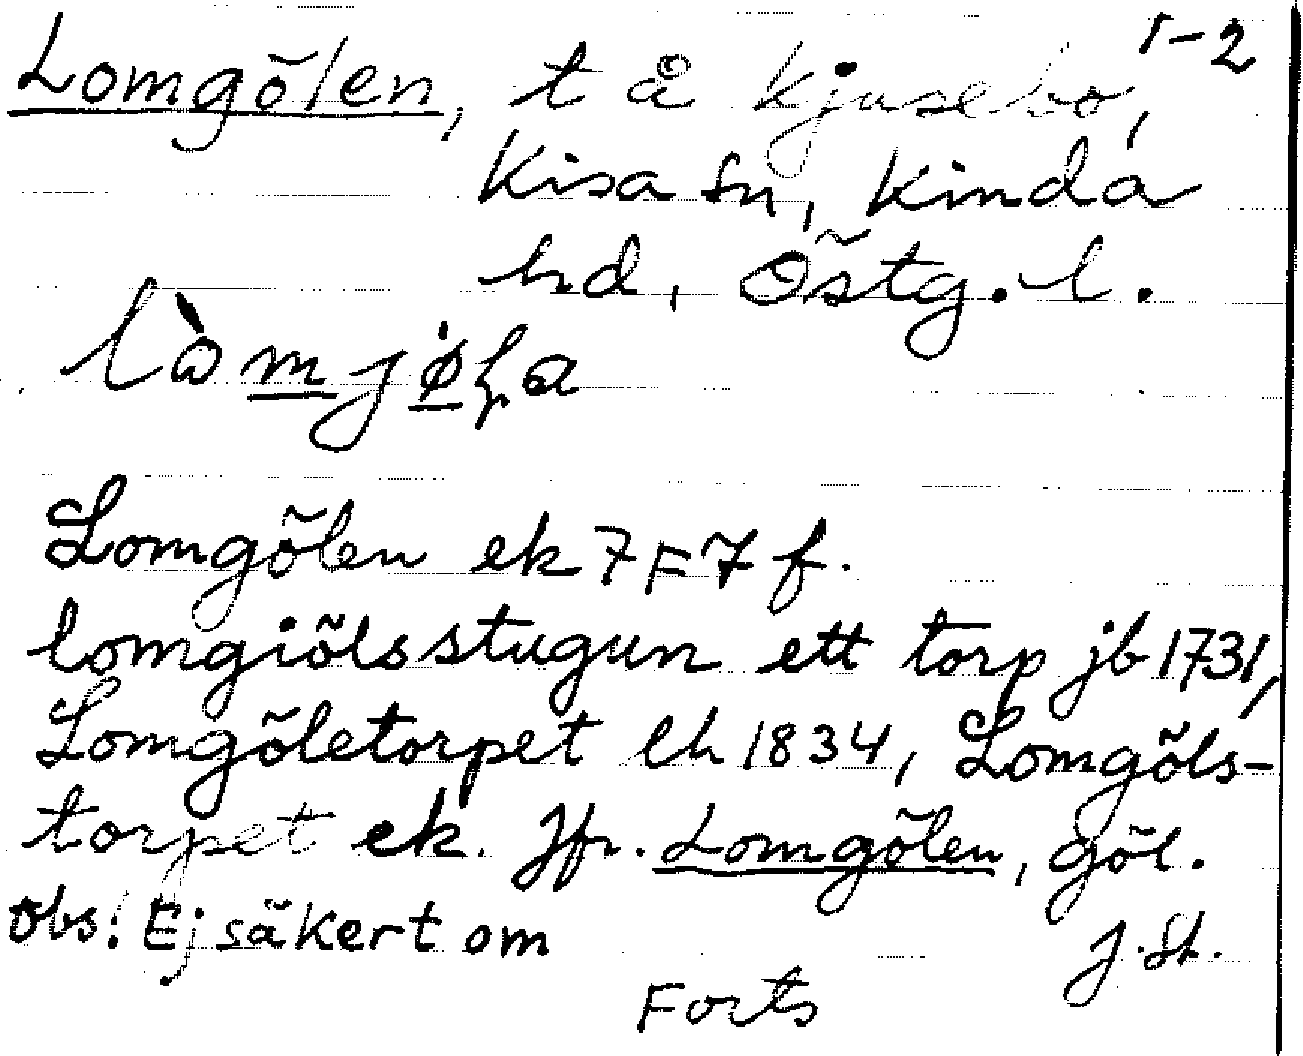 1-2
Lomgölen, t å Kjusebo,
Kisa sn, Kinda
hd, Östg. l.
Lomgölen ek 7F7f.
Lomgiölsstugun ett torp jb 1731,
Lomgöletorpet lh 1834, Lomgöls-
torpet ek. Jfr. Lomgölen, göl.
Obs! Ej säkert om
J. St.
Forts